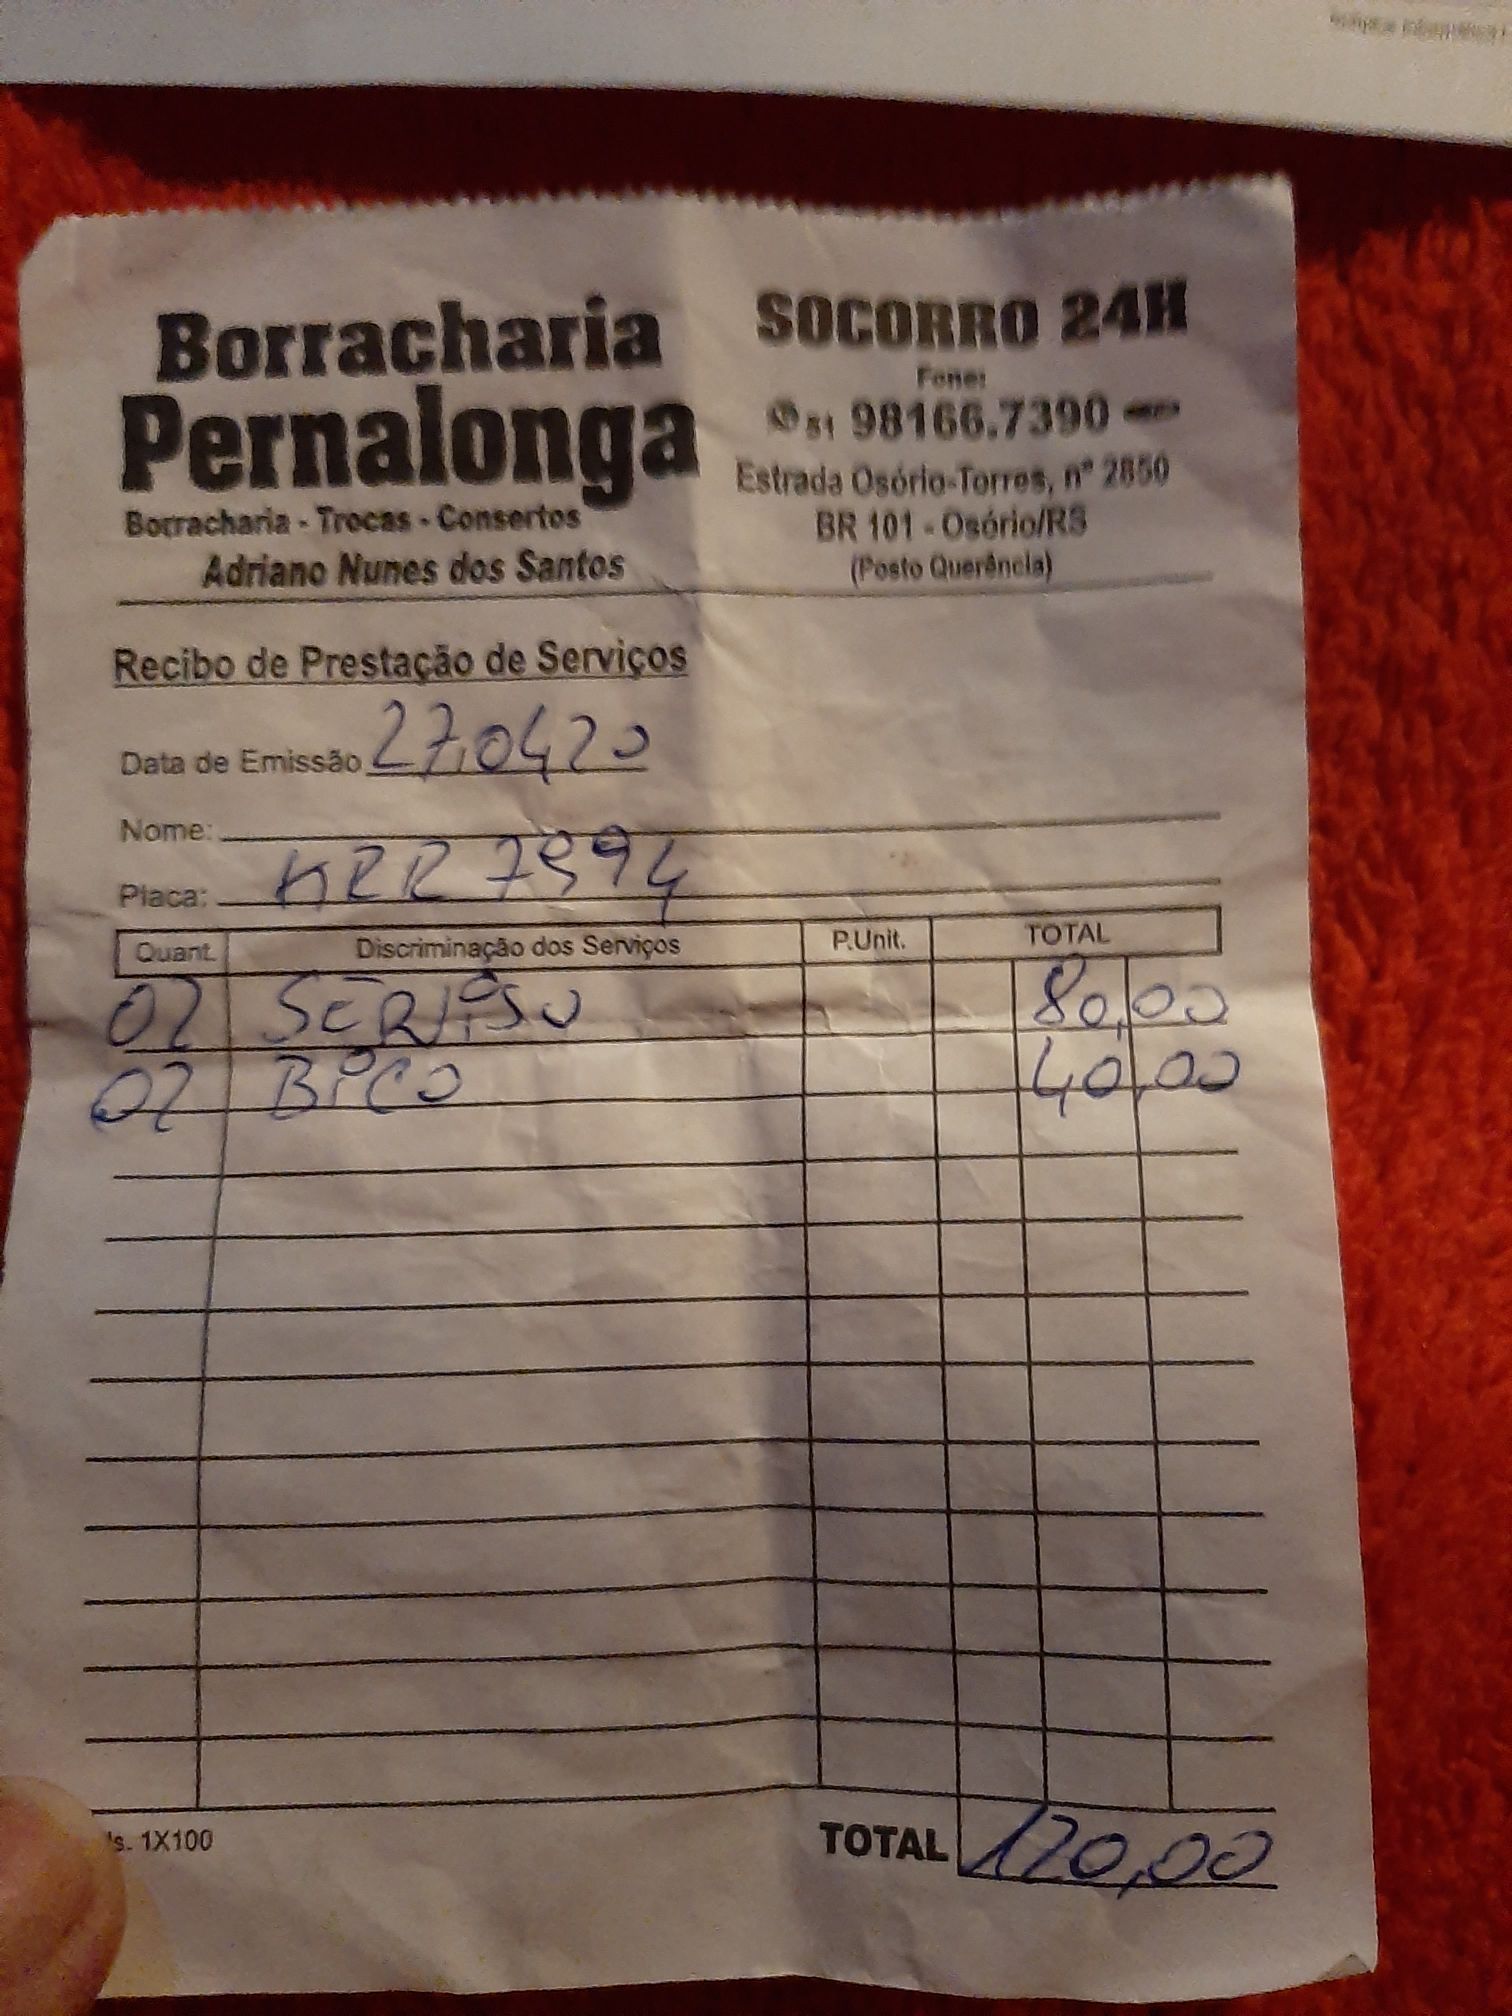 Borracharia
Pernalonga
Borracharia - Trocas - Consertos
Adriano Nunes dos Santos
SOCORRO 24H
Fone:
51 98166.7390
Estrada Osório-Torres, nº 2850
BR 101 - Osório/RS
(Posto Querência)
Recibo de Prestação de Serviços
Data de Emissão 27.04 20
Nome:
Placa: KRR 7994
Quant. Discriminação dos Serviços P.Unit. TOTAL
02 SERViSO 80,00
02 BiCO 40,00
ls. 1X100
TOTAL 120,00